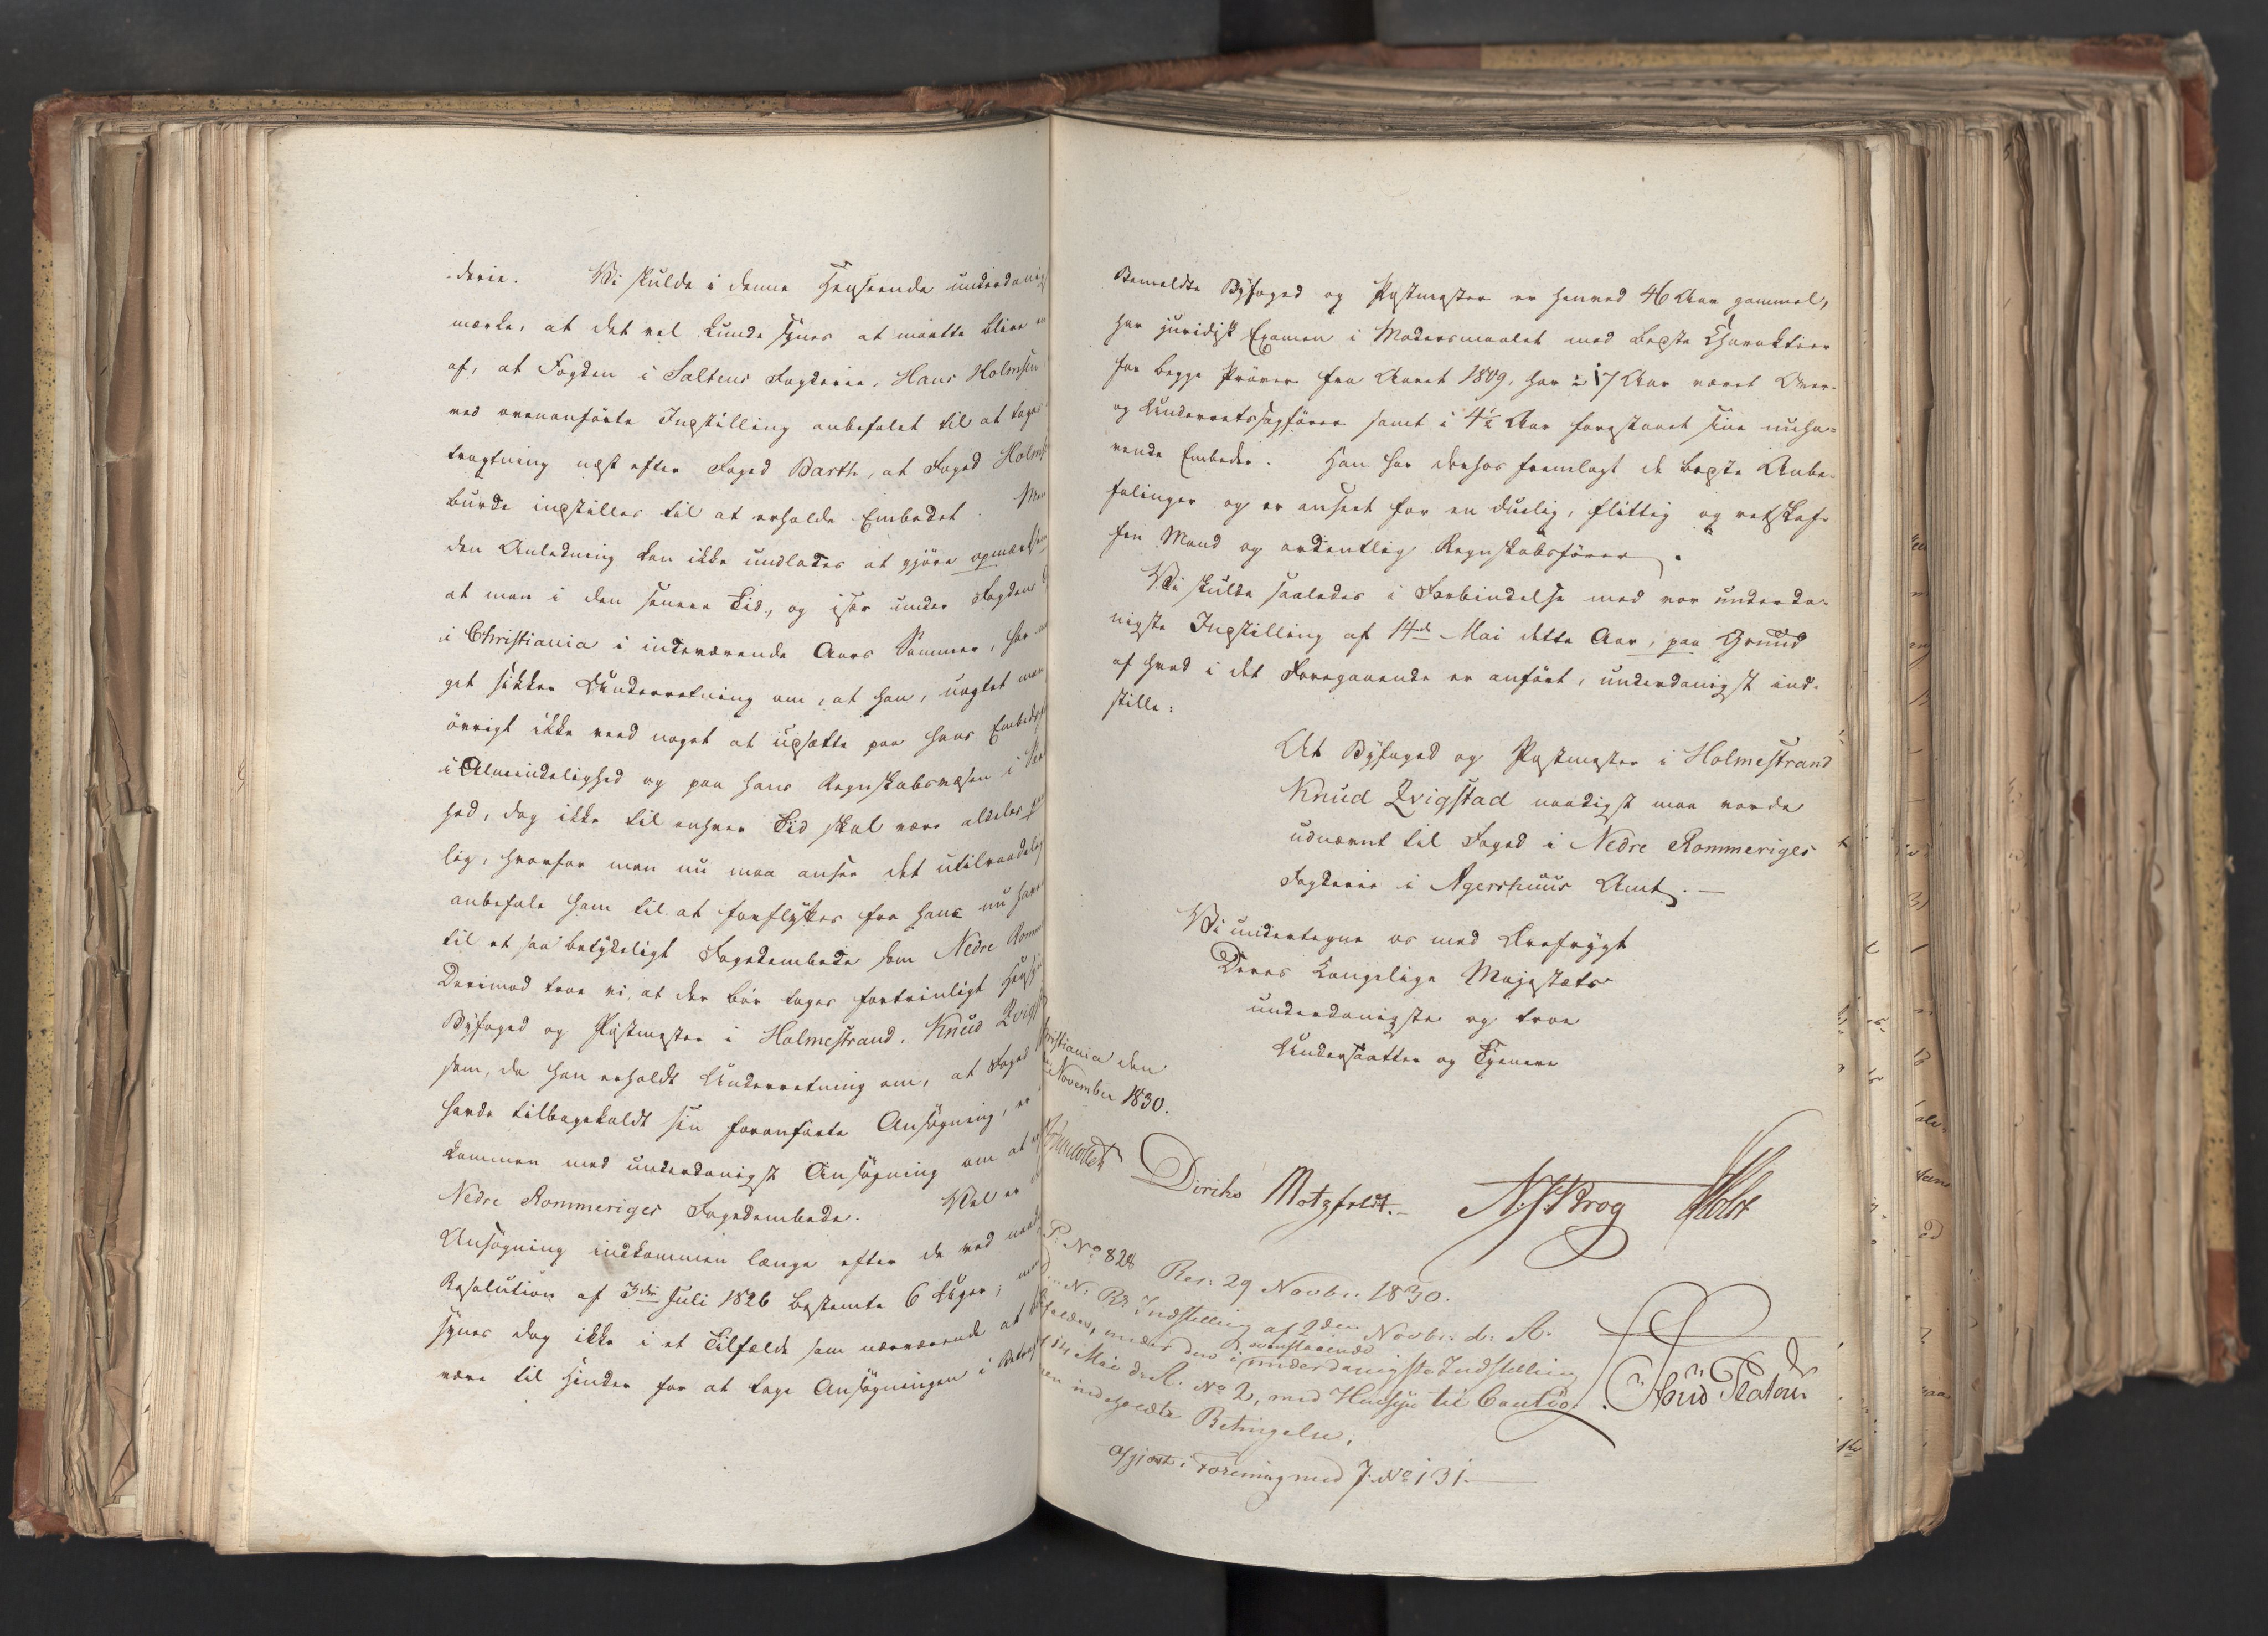 derie. Vi skulde i denne Henseende underdanig
mærke, at det vel kunde synes at maatte blive
af, at Fogden i Saltens Fogderie, Hans Holmsen
ved ovenanførte Indstilling anbefalet til at tages
tragtning næst efter Foged Barth, at Foged Holms
burde indstilles til at erholde Embedet. Men
den Anledning kan ikke undlades at gjøre opmærksom
at man i den senere Tid, og især under Fogdens
i Christiania i indeværende Aars Sommer, har
get sikker Underretning om, at han, uagtet man
øvrigt ikke veed noget at udsætte paa hans Embeds
i Almindelighed og paa hans Regnskabsvæsen i
hed, dog ikke til enhver Tid skal være aldeles
lig, hvorfor man nu maa ansee det utilraadelig
anbefale ham til at forflyttes fra hans nu hav
til et saa betydeligt Fogedembede som Nedre Romm
Derimod troe vi, at der bør tages fortrinligt Hensyn
Byfoged og Postmester i Holmestrand, Knud Qvigst
som, da han erholdt Underretning om, at Foged
havde tilbagekaldt sin foranførte Ansøgning, er
kommen med underdanigst Ansøgning om at
Nedre Rommeriges Fogedembede. Vel er
Ansøgning indkommen længe efter de ved naad
Resolution af 3die Juli 1826 bestemte 6 Uger; men
synes dog ikke i et Tilfælde som nærværende at
være til Hinder for at tage Ansøgningen i Betrag
Bemeldte Byfoged og Postmester er henved 46 Aar gammel,
har juridisk Examen i Modersmaalet med bedste Charakteer
for begge Prøver fra Aaret 1809, har i 17 Aar været Over-
og Underretssagfører samt i 4½ Aar forestaaet sine nuha-
vende Embeder. Han har derhos fremlagt de bedste Anbe-
falinger og er anseet for en duelig, flittig og retskaf-
fen Mand og ordentlig Regnskabsfører.
Vi skulde saaledes i Forbindelse med vor underda-
nigste Indstilling af 14de Mai dette Aar, paa Grund
af hvad i det Foregaaende er anført, underdanigst ind-
stille:
At Byfoged og Postmester i Holmestrand
Knud Qvigstad naadigst maa vorde
udnævnt til Foged i Nedre Rommeriges
Fogderie i Agershuus Amt. —
Vi undertegne os med Ærefrygt
Deres Kongelige Majestæts
underdanigste og troe
Undersaatter og Tjenere
ristiania den
November 1830.
Diriks Motzfeldt. N. J. Krog Holst
P: No 828 Res: 29 Novbr. 1830.
N: R's Indstilling af 2den Novbr. d: A.
ovenstaaende
faldes, under den i underdanigste Indstilling
14 Mai d: A. No 2, med Hensyn til Caution
en indeholdte Betingelse.
Afgjort i Forening med J. No 131.